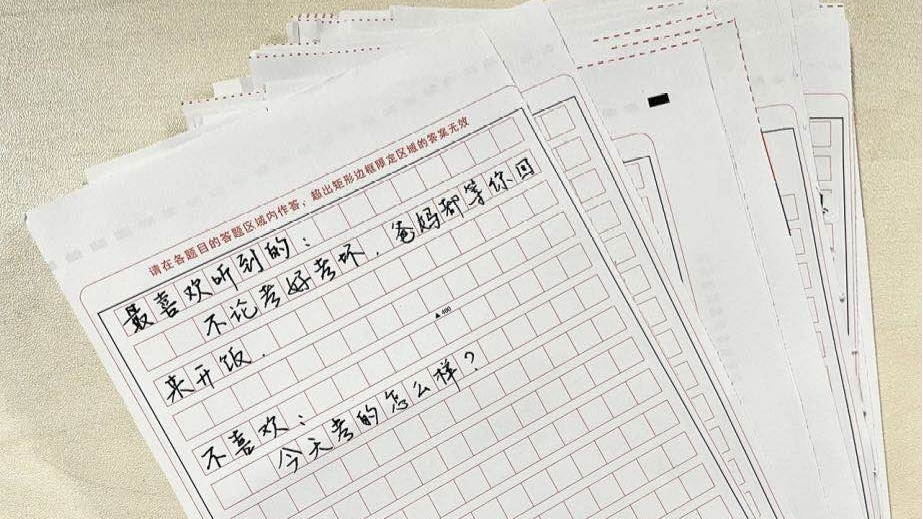 请在各题目的答题区域内作答，超出矩形边框限定区域的答案无效
最喜欢听到的：
不论考好考坏，爸妈都等你回
来开饭．
▲400
不喜欢：
今天考的怎么样？